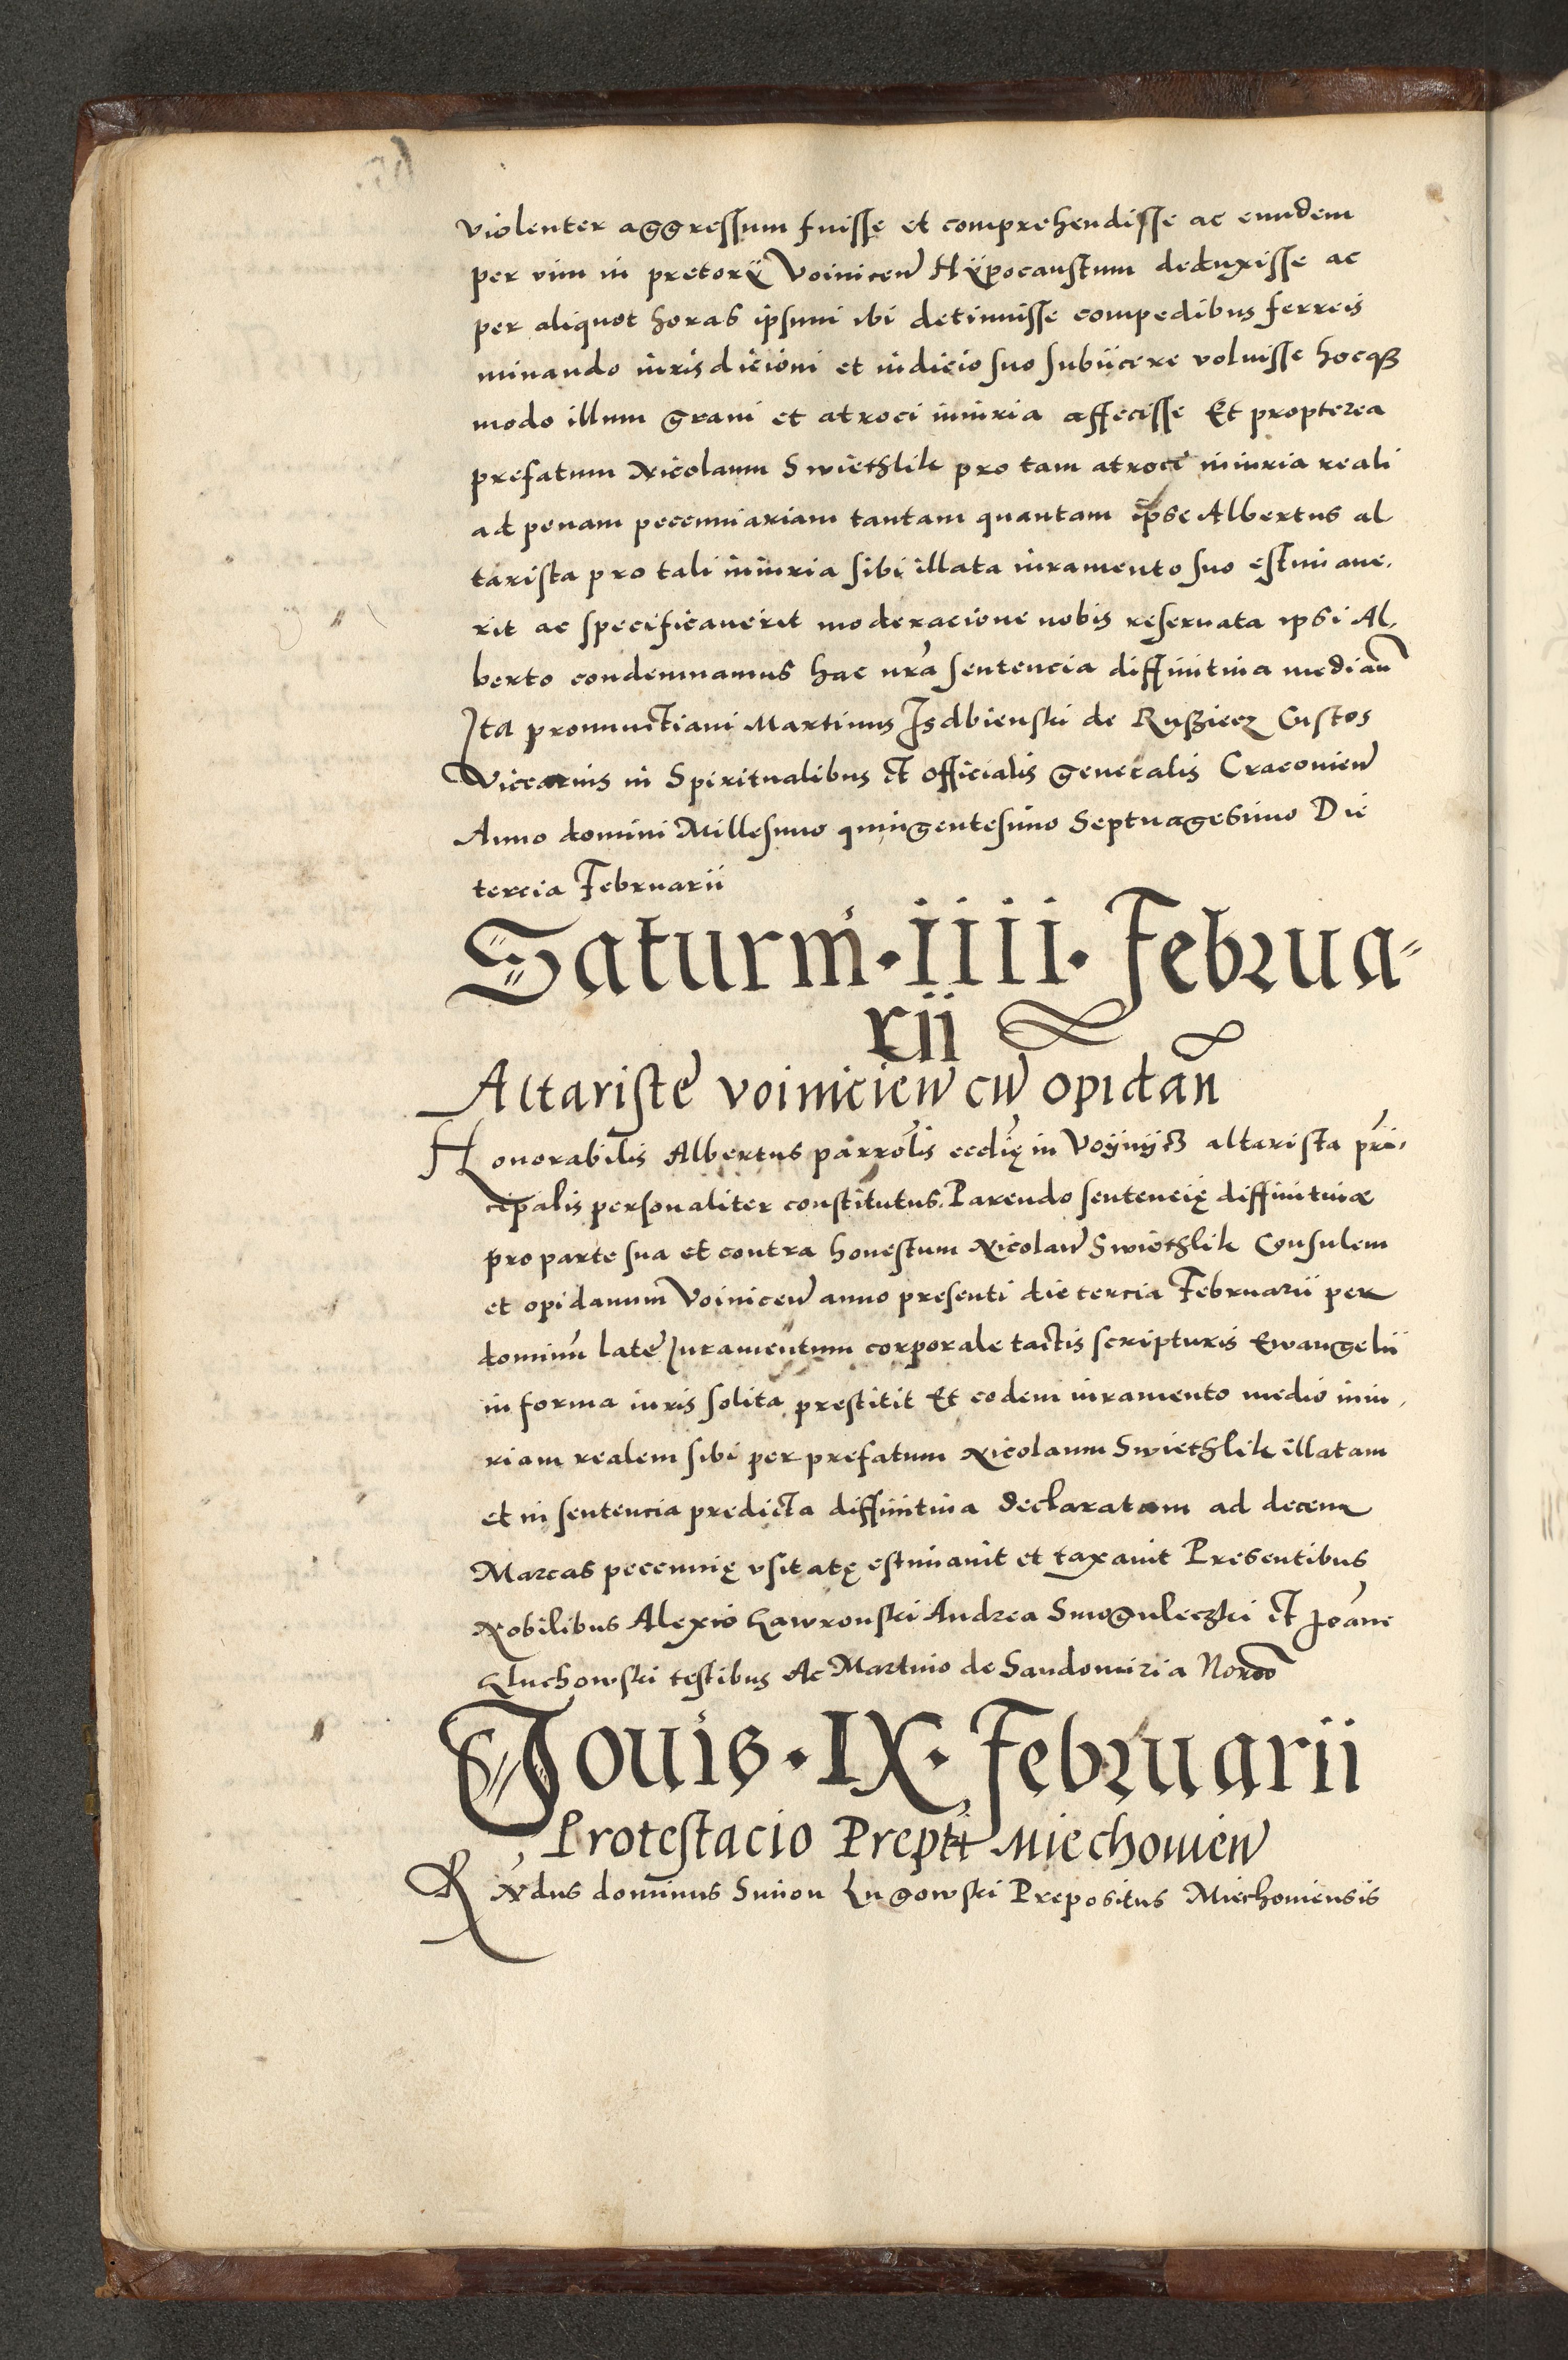 violenter aggressum fuisse et comprehendisse ac eundem
per vim in pretorÿ Voinicen̄ Hÿpocaustum deduxisse ac
per aliquot horas ipsum ibi detinuisse compedibus ferreis
minando iurisdicioni et iudicio suo subiicere voluisse hocqȝ
modo illum graui et atroci iniuria affecisse Et propterea
prefatum Nicolaum Swiethlik pro tam atroci iniuria reali
ad penam pecenniariam tantam quantam ipse Albertus al
tarista pro tali iniuria sibi illata iuramento suo estimaue,
rit ac specificauerit moderacione nobis reseruata ipsi Al,
berto condemnamus hac nrā sentencia diffinitiua median̄
Ita pronunctiaui Martinus Isdbienski de Rusziecz Custos
Viccarius in Spiritualibus et officialis generalis Cracouien̄
Anno domini Millesimo quingentesimo Septuagesimo Die
tercia Februarii
Saturni · IIII · Februa=
rii
Altariste voinicien̄ cū opidan̄
Honorabilis Albertus parrolis ecclię in Voÿnÿcz altarista pri,
cipalis personaliter constitutus. Parendo sentencię diffinitiuæ
pro parte sua et contra honestum Nicolaū Swiethlik Consulem
et opidanum Voinicen̄ anno presenti die tercia Februarii per
dominū latē Iuramentum corporale tactis scripturis Ewangelii
in forma iuris solita prestitit Et eodem iuramento medio iniu,
riam realem sibi per prefatum Nicolaum Swiethlik illatam
et in sentencia predicta diffinitiua declaratam ad decem
Marcas pecennię vsitatę estimauit et taxauit Presentibus
Nobilibus Alexio Gawronski Andrea Smoguleczki et Joāne
Gluchowski testibus Ac Martino de Sandomiria Norio
Jouis · IX · Februarii
Protestacio Prepti Miechouien̄
Rndus dominus Simon Lugowski Prepositus Miechouiensis